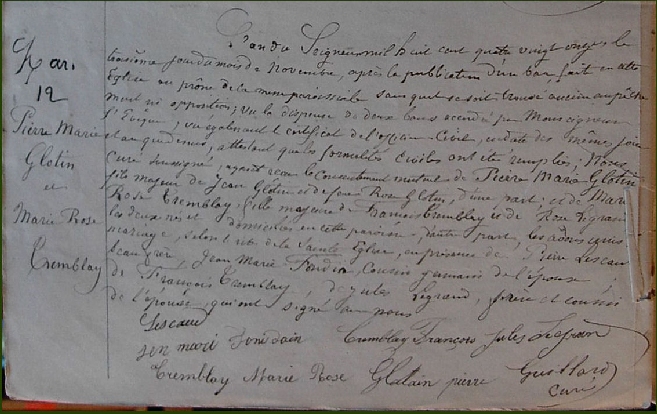 Mar.
12
Pierre Marie
Glotin
et
Marie Rose
Tremblay
L'an du Seigneur mil huit cent quatre vingt onze, le
troisième jour du mois de Novembre, après la publication d'un ban fait en cette
Eglise au prône de la messe paroissiale sans qu'il se soit trouvé aucun empêche
ment ni opposition; vu la dispense de deux bans accordée par Monseigneur
l'Evêque; vu également le certificat de l'officier Civil, en date des mêmes jour
et an que dessus, attestant que les formalités civiles ont été remplies, Nous,
Curé soussigné, ayant reçu le Consentement mutuel de Pierre Marie Glotin
fils majeur de Jean Glotin et de feue Rose Glotin, d'une part; et de Marie
Rose Tremblay, fille majeure de François Tremblay et de Rose Legrand
les deux nés et domiciliés en cette paroisse, d'autre part, les avons unis
en mariage, selon le rite de la Sainte Eglise, en présence de Pierre Lescau
beau frère, Jean Marie cousin germain de l'époux,
de François Tremblay, de Jules Legrand, frère et cousin
de l'épouse, qui ont signé avec nous
Lescaud
jan mari Tremblay François Jules Legran
Tremblay Marie Rose Glatain pierre
Curé